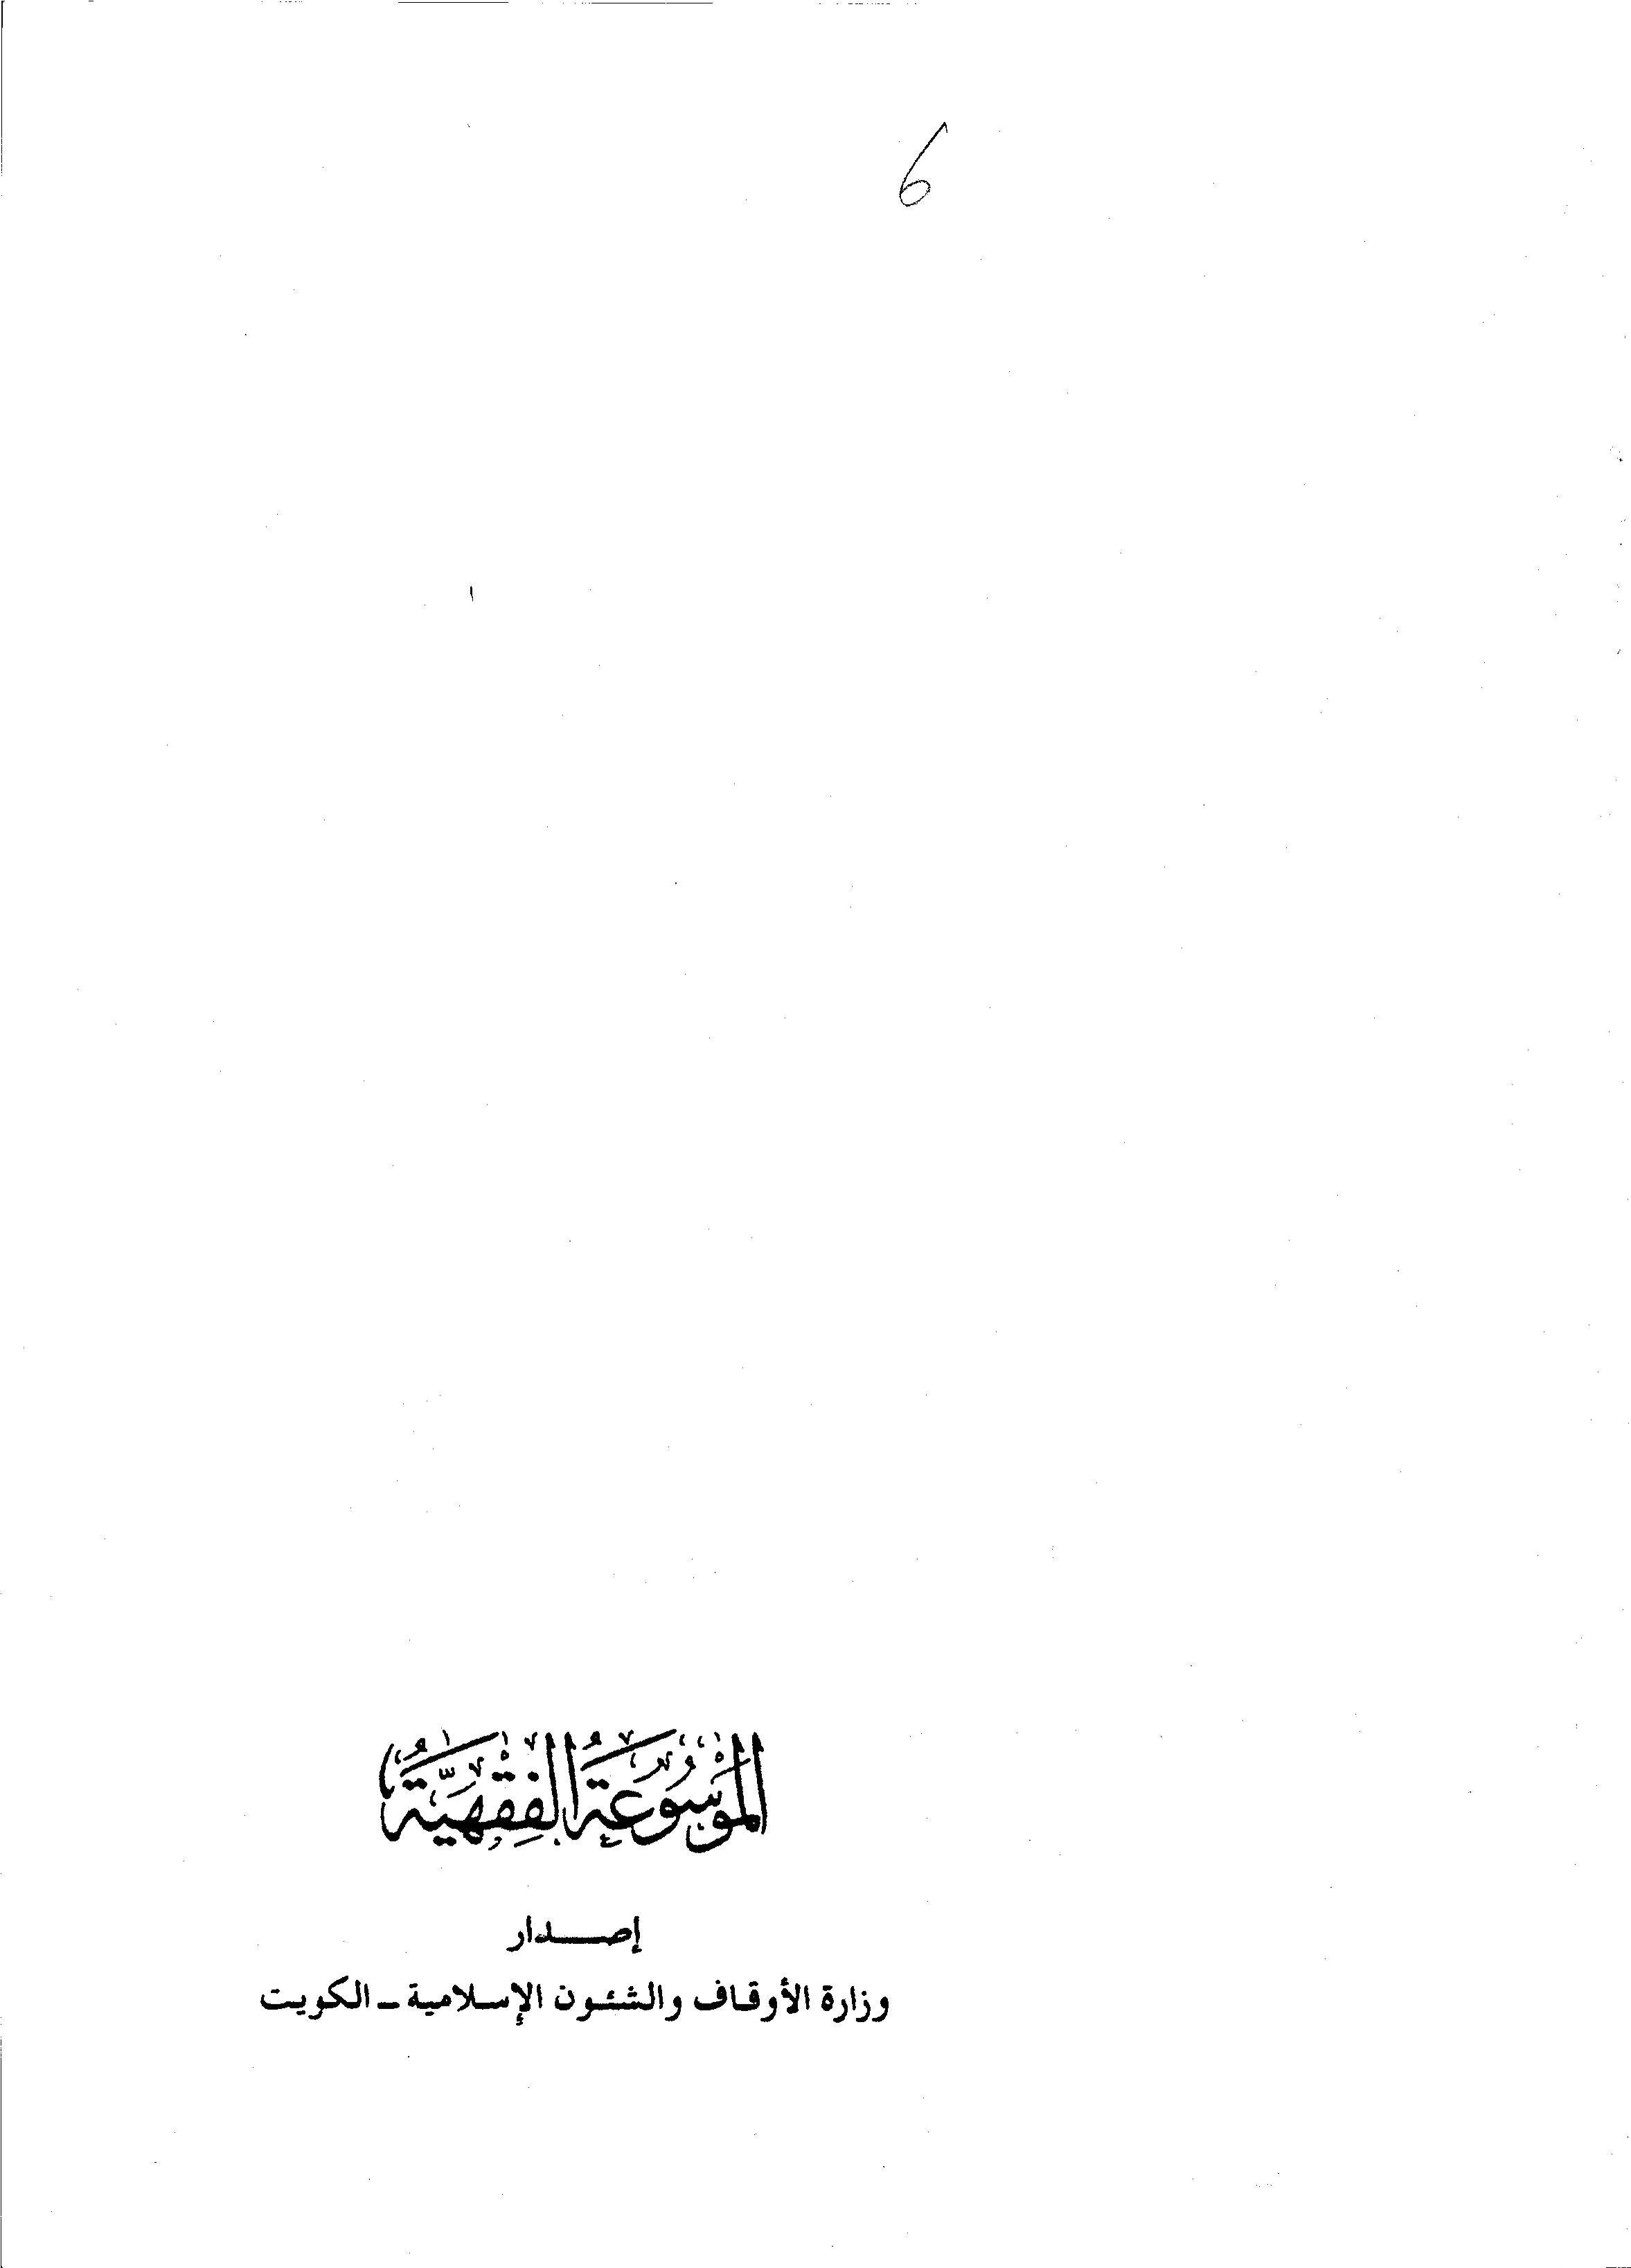 6
الموسوعة الفقهية
إصدار
وزارة الأوقاف والشئون الإسلامية - الكويت